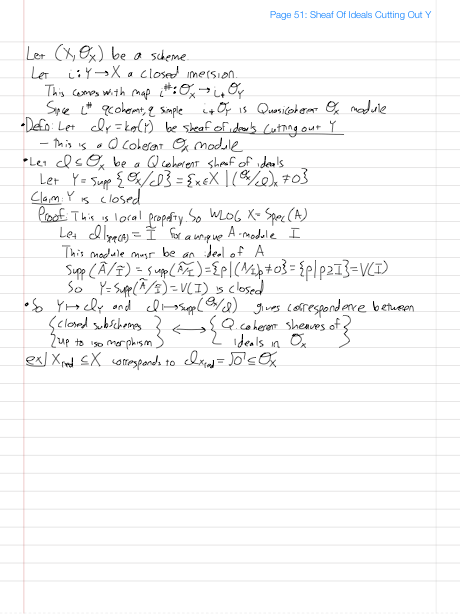 Page 51: Sheaf Of Ideals Cutting Out Y
Let (X, 𝒪_X) be a scheme
Let i: Y → X a closed imersion.
This comes with map i^#: 𝒪_X → i_* 𝒪_Y
Since i^# qcoherent, simple i_* 𝒪_Y is Quasicoherent 𝒪_X module
• Defn: Let cl_Y = ker(i^#) be sheaf of ideals cutting out Y
- This is a Q coherent 𝒪_X module
• Let cl ⊆ 𝒪_X be a Q coherent sheaf of ideals
Let Y = supp {𝒪_X/cl} = {x ∈ X | (𝒪_X/cl)_x ≠ 0}
Claim: Y is closed
Proof: This is local property. So WLOG X = Spec(A)
Let cl|_{Spec(A)} = Ĩ for a unique A-module I
This module must be an ideal of A
Supp(Ã/Ĩ) = supp(A/I) = {p | (A/I)_p ≠ 0} = {p | p ⊇ I} = V(I)
So Y = Supp(Ã/Ĩ) = V(I) is closed
• So Y ↦ cl_Y and cl ↦ supp(𝒪_X/cl) gives correspondence between
{closed subschemes up to isomorphism} ⟷ {Q. coherent sheaves of ideals in 𝒪_X}
ex] X_red ⊆ X corresponds to cl_{X_red} = √0 ⊆ 𝒪_X